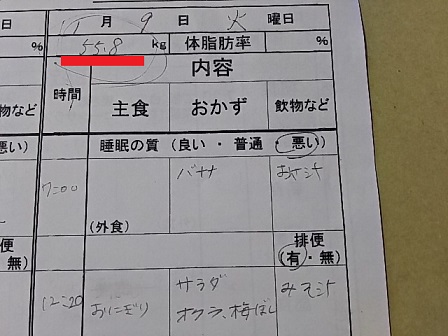 日 11 月 9 日 火 曜日
% 55.8 kg 体脂肪率 %
内容
時間
物など 主食 おかず 飲物など
悪い) 睡眠の質 (良い ・ 普通 ・ 悪い)
7:00 バナナ みそ汁
(外食)
排便
・無) (有・無)
12:20 おにぎり サラダ みそ汁
オクラ、梅ぼし